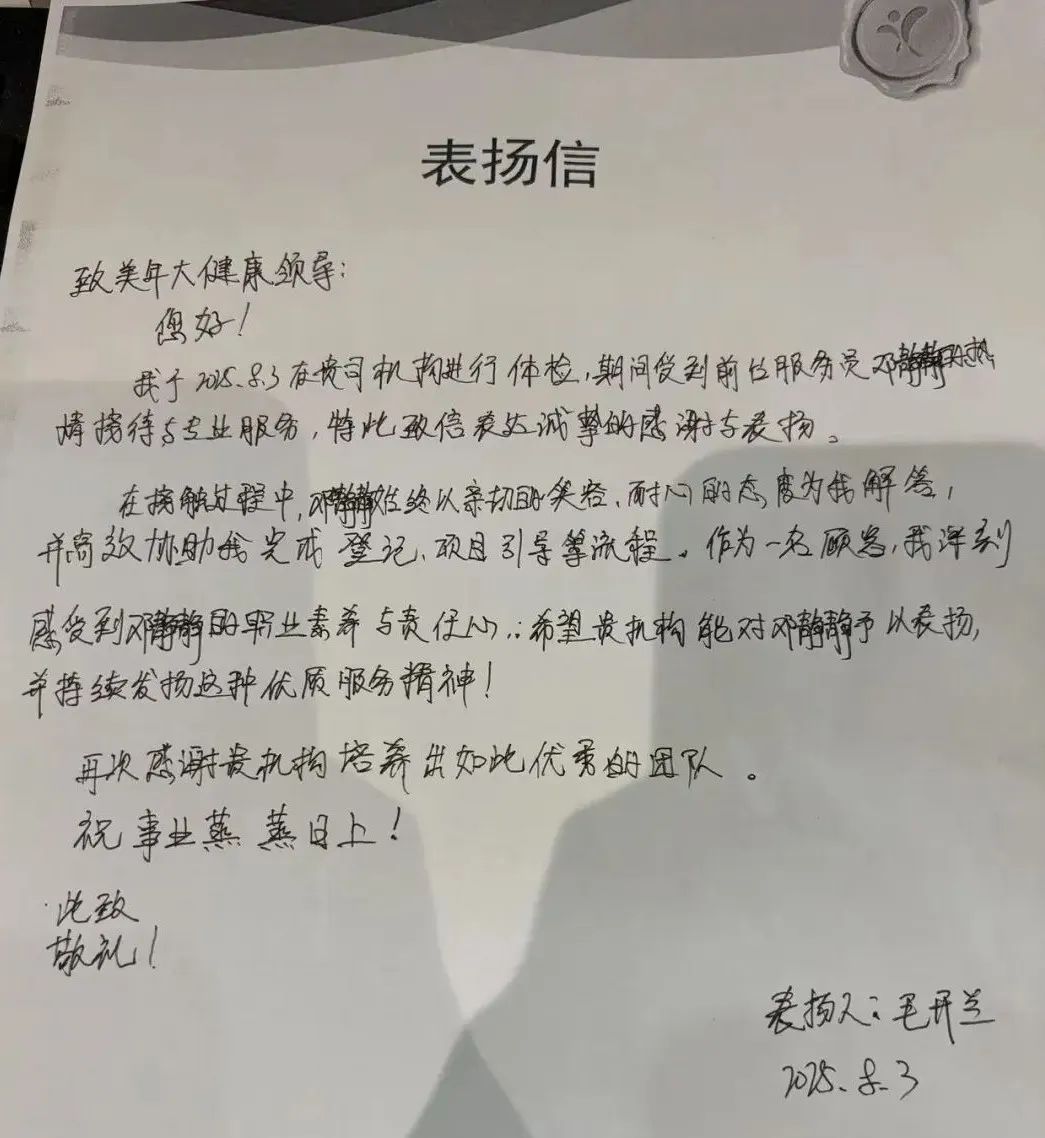 表扬信
致美年大健康领导:
您好!
我于2025.8.3在贵司机构进行体检,期间受到前台服务员邓静静的热
情接待与专业服务,特此致信表达诚挚的感谢与表扬。
在接触过程中,邓静静始终以亲切的笑容、耐心的态度为我解答,
并高效协助我完成登记、项目引导等流程。作为一名顾客,我深刻
感受到邓静静的职业素养与责任心,希望贵机构能对邓静静予以表扬,
并持续发扬这种优质服务精神!
再次感谢贵机构培养出如此优秀的团队。
祝事业蒸蒸日上!
此致
敬礼!
表扬人:毛开兰
2025.8.3